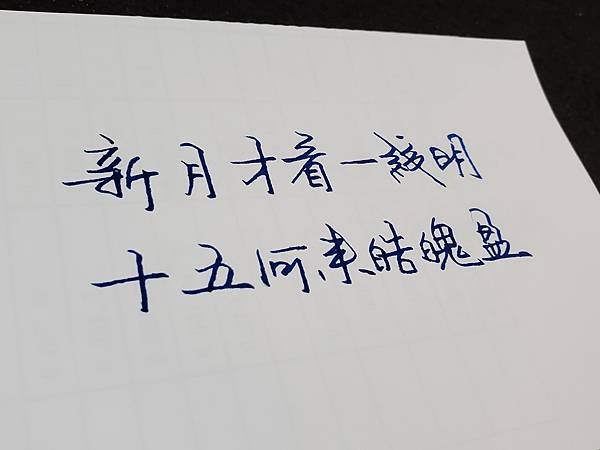 新月才看一線明
十五何來皓魄盈